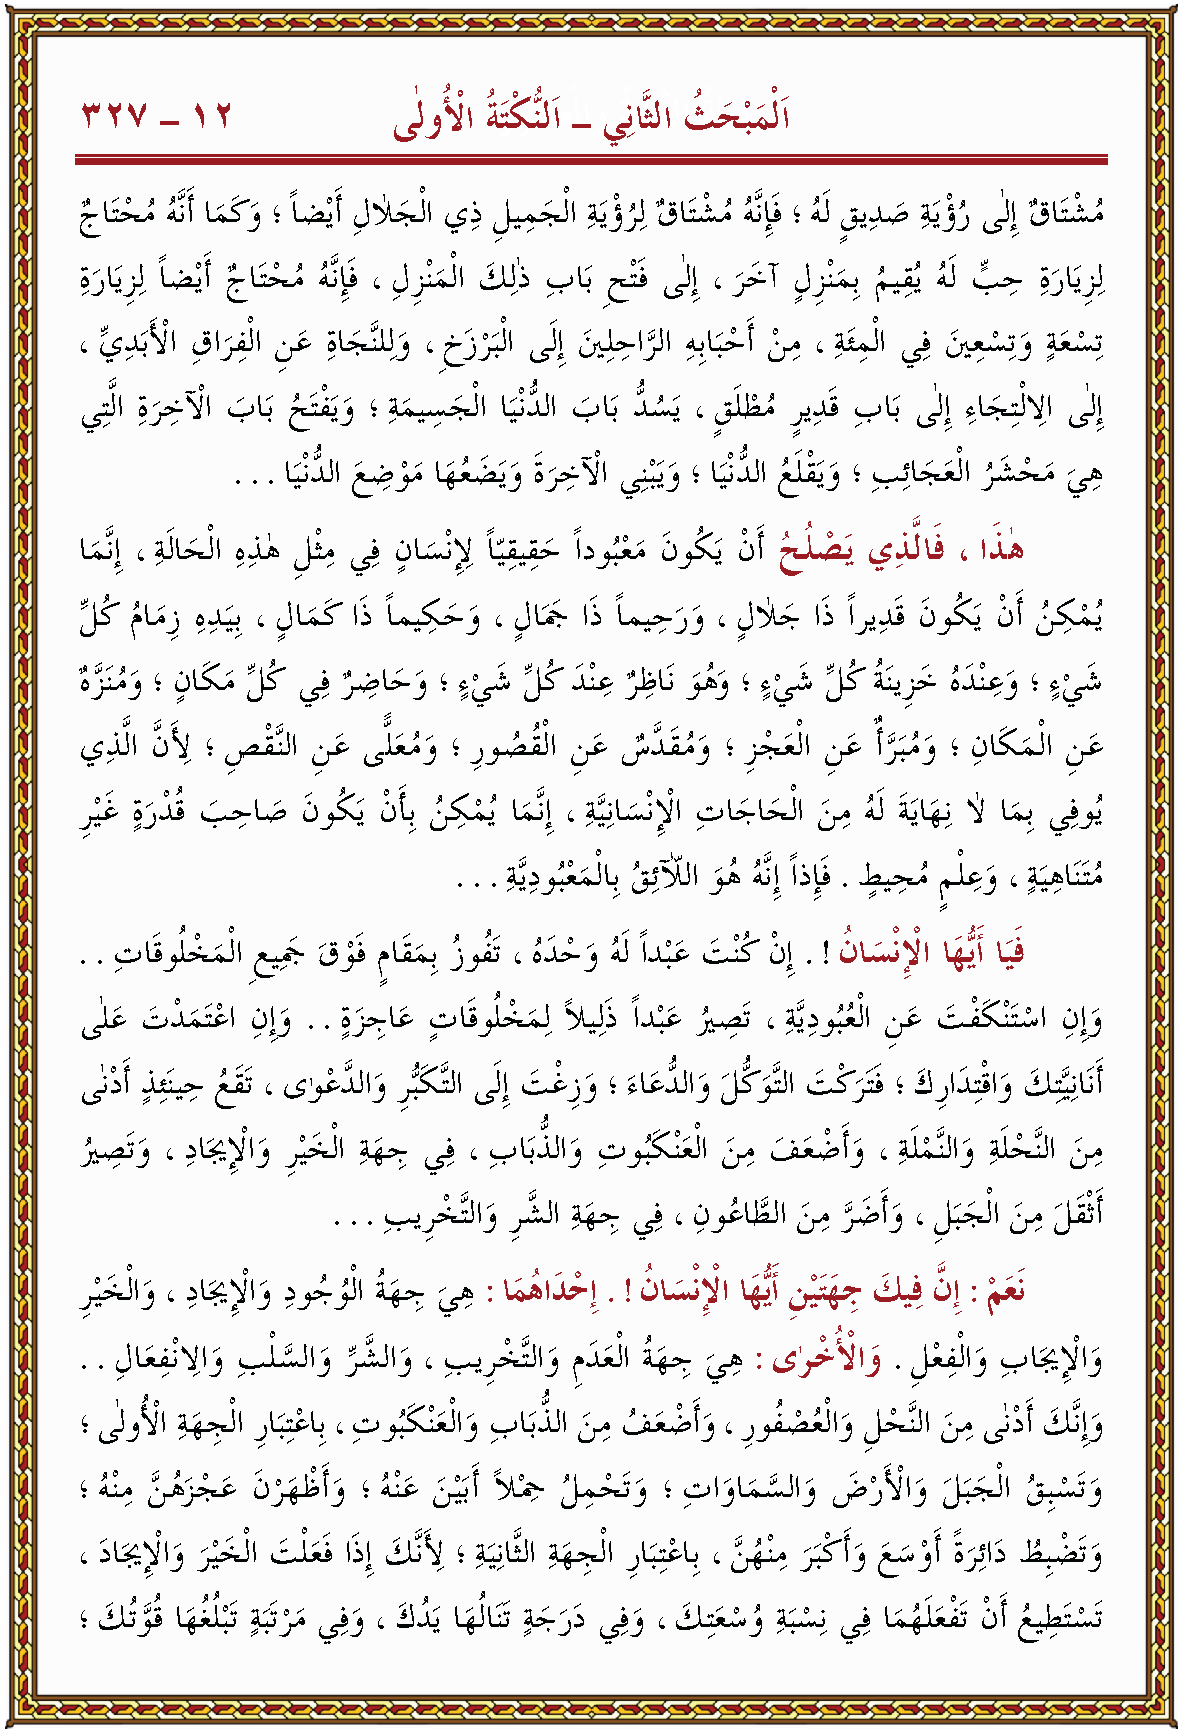 اَلْمَبْحَثُ الثَّانِي – اَلنُّكْتَةُ الْأُولٰى ١٢ – ٣٢٧
مُشْتَاقٌ إِلٰى رُؤْيَةِ صَدِيقٍ لَهُ ؛ فَإِنَّهُ مُشْتَاقٌ لِرُؤْيَةِ الْجَمِيلِ ذِي الْجَلاٰلِ أَيْضاً ؛ وَكَمَا أَنَّهُ مُحْتَاجٌ
لِزِيَارَةِ حِبٍّ لَهُ يُقِيمُ بِمَنْزِلٍ آخَرَ ، إِلٰى فَتْحِ بَابِ ذٰلِكَ الْمَنْزِلِ ، فَإِنَّهُ مُحْتَاجٌ أَيْضاً لِزِيَارَةِ
تِسْعَةٍ وَتِسْعِينَ فِي الْمِئَةِ ، مِنْ أَحْبَابِهِ الرَّاحِلِينَ إِلَى الْبَرْزَخِ ، وَلِلنَّجَاةِ عَنِ الْفِرَاقِ الْأَبَدِيِّ ،
إِلٰى الْاِلْتِجَاءِ إِلٰى بَابِ قَدِيرٍ مُطْلَقٍ ، يَسُدُّ بَابَ الدُّنْيَا الْجَسِيمَةِ ؛ وَيَفْتَحُ بَابَ الْآخِرَةِ الَّتِي
هِيَ مَحْشَرُ الْعَجَائِبِ ؛ وَيَقْلَعُ الدُّنْيَا ؛ وَيَبْنِي الْآخِرَةَ وَيَضَعُهَا مَوْضِعَ الدُّنْيَا . . .
هٰذَا ، فَالَّذِي يَصْلُحُ أَنْ يَكُونَ مَعْبُوداً حَقِيقِيّاً لِإِنْسَانٍ فِي مِثْلِ هٰذِهِ الْحَالَةِ ، إِنَّمَا
يُمْكِنُ أَنْ يَكُونَ قَدِيراً ذَا جَلاٰلٍ ، وَرَحِيماً ذَا جَمَالٍ ، وَحَكِيماً ذَا كَمَالٍ ، بِيَدِهِ زِمَامُ كُلِّ
شَيْءٍ ؛ وَعِنْدَهُ خَزِينَةُ كُلِّ شَيْءٍ ؛ وَهُوَ نَاظِرٌ عِنْدَ كُلِّ شَيْءٍ ؛ وَحَاضِرٌ فِي كُلِّ مَكَانٍ ؛ وَمُنَزَّهٌ
عَنِ الْمَكَانِ ؛ وَمُبَرَّأٌ عَنِ الْعَجْزِ ؛ وَمُقَدَّسٌ عَنِ الْقُصُورِ ؛ وَمُعَلًّى عَنِ النَّقْصِ ؛ لِأَنَّ الَّذِي
يُوفِي بِمَا لاٰ نِهَايَةَ لَهُ مِنَ الْحَاجَاتِ الْإِنْسَانِيَّةِ ، إِنَّمَا يُمْكِنُ بِأَنْ يَكُونَ صَاحِبَ قُدْرَةٍ غَيْرِ
مُتَنَاهِيَةٍ ، وَعِلْمٍ مُحِيطٍ . فَإِذاً إِنَّهُ هُوَ اللّاَئِقُ بِالْمَعْبُودِيَّةِ . . .
فَيَا أَيُّهَا الْإِنْسَانُ ! . إِنْ كُنْتَ عَبْداً لَهُ وَحْدَهُ ، تَفُوزُ بِمَقَامٍ فَوْقَ جَمِيعِ الْمَخْلُوقَاتِ . .
وَإِنِ اسْتَنْكَفْتَ عَنِ الْعُبُودِيَّةِ ، تَصِيرُ عَبْداً ذَلِيلاً لِمَخْلُوقَاتٍ عَاجِزَةٍ . . وَإِنِ اعْتَمَدْتَ عَلٰى
أَنَانِيَّتِكَ وَاقْتِدَارِكَ ؛ فَتَرَكْتَ التَّوَكُّلَ وَالدُّعَاءَ ؛ وَزِغْتَ إِلَى التَّكَبُّرِ وَالدَّعْوٰى ، تَقَعُ حِينَئِذٍ أَدْنٰى
مِنَ النَّحْلَةِ وَالنَّمْلَةِ ، وَأَضْعَفَ مِنَ الْعَنْكَبُوتِ وَالذُّبَابِ ، فِي جِهَةِ الْخَيْرِ وَالْإِيجَادِ ، وَتَصِيرُ
أَثْقَلَ مِنَ الْجَبَلِ ، وَأَضَرَّ مِنَ الطَّاعُونِ ، فِي جِهَةِ الشَّرِّ وَالتَّخْرِيبِ . . .
نَعَمْ : إِنَّ فِيكَ جِهَتَيْنِ أَيُّهَا الْإِنْسَانُ ! . إِحْدَاهُمَا : هِيَ جِهَةُ الْوُجُودِ وَالْإِيجَادِ ، وَالْخَيْرِ
وَالْإِيجَابِ وَالْفِعْلِ . وَالْأُخْرٰى : هِيَ جِهَةُ الْعَدَمِ وَالتَّخْرِيبِ ، وَالشَّرِّ وَالسَّلْبِ وَالْاِنْفِعَالِ . .
وَإِنَّكَ أَدْنٰى مِنَ النَّحْلِ وَالْعُصْفُورِ ، وَأَضْعَفُ مِنَ الذُّبَابِ وَالْعَنْكَبُوتِ ، بِاعْتِبَارِ الْجِهَةِ الْأُولٰى ؛
وَتَسْبِقُ الْجَبَلَ وَالْأَرْضَ وَالسَّمَاوَاتِ ؛ وَتَحْمِلُ حِمْلاً أَبَيْنَ عَنْهُ ؛ وَأَظْهَرْنَ عَجْزَهُنَّ مِنْهُ ؛
وَتَضْبِطُ دَائِرَةً أَوْسَعَ وَأَكْبَرَ مِنْهُنَّ ، بِاعْتِبَارِ الْجِهَةِ الثَّانِيَةِ ؛ لِأَنَّكَ إِذَا فَعَلْتَ الْخَيْرَ وَالْإِيجَادَ ،
تَسْتَطِيعُ أَنْ تَفْعَلَهُمَا فِي نِسْبَةِ وُسْعَتِكَ ، وَفِي دَرَجَةٍ تَنَالُهَا يَدُكَ ، وَفِي مَرْتَبَةٍ تَبْلُغُهَا قُوَّتُكَ ؛